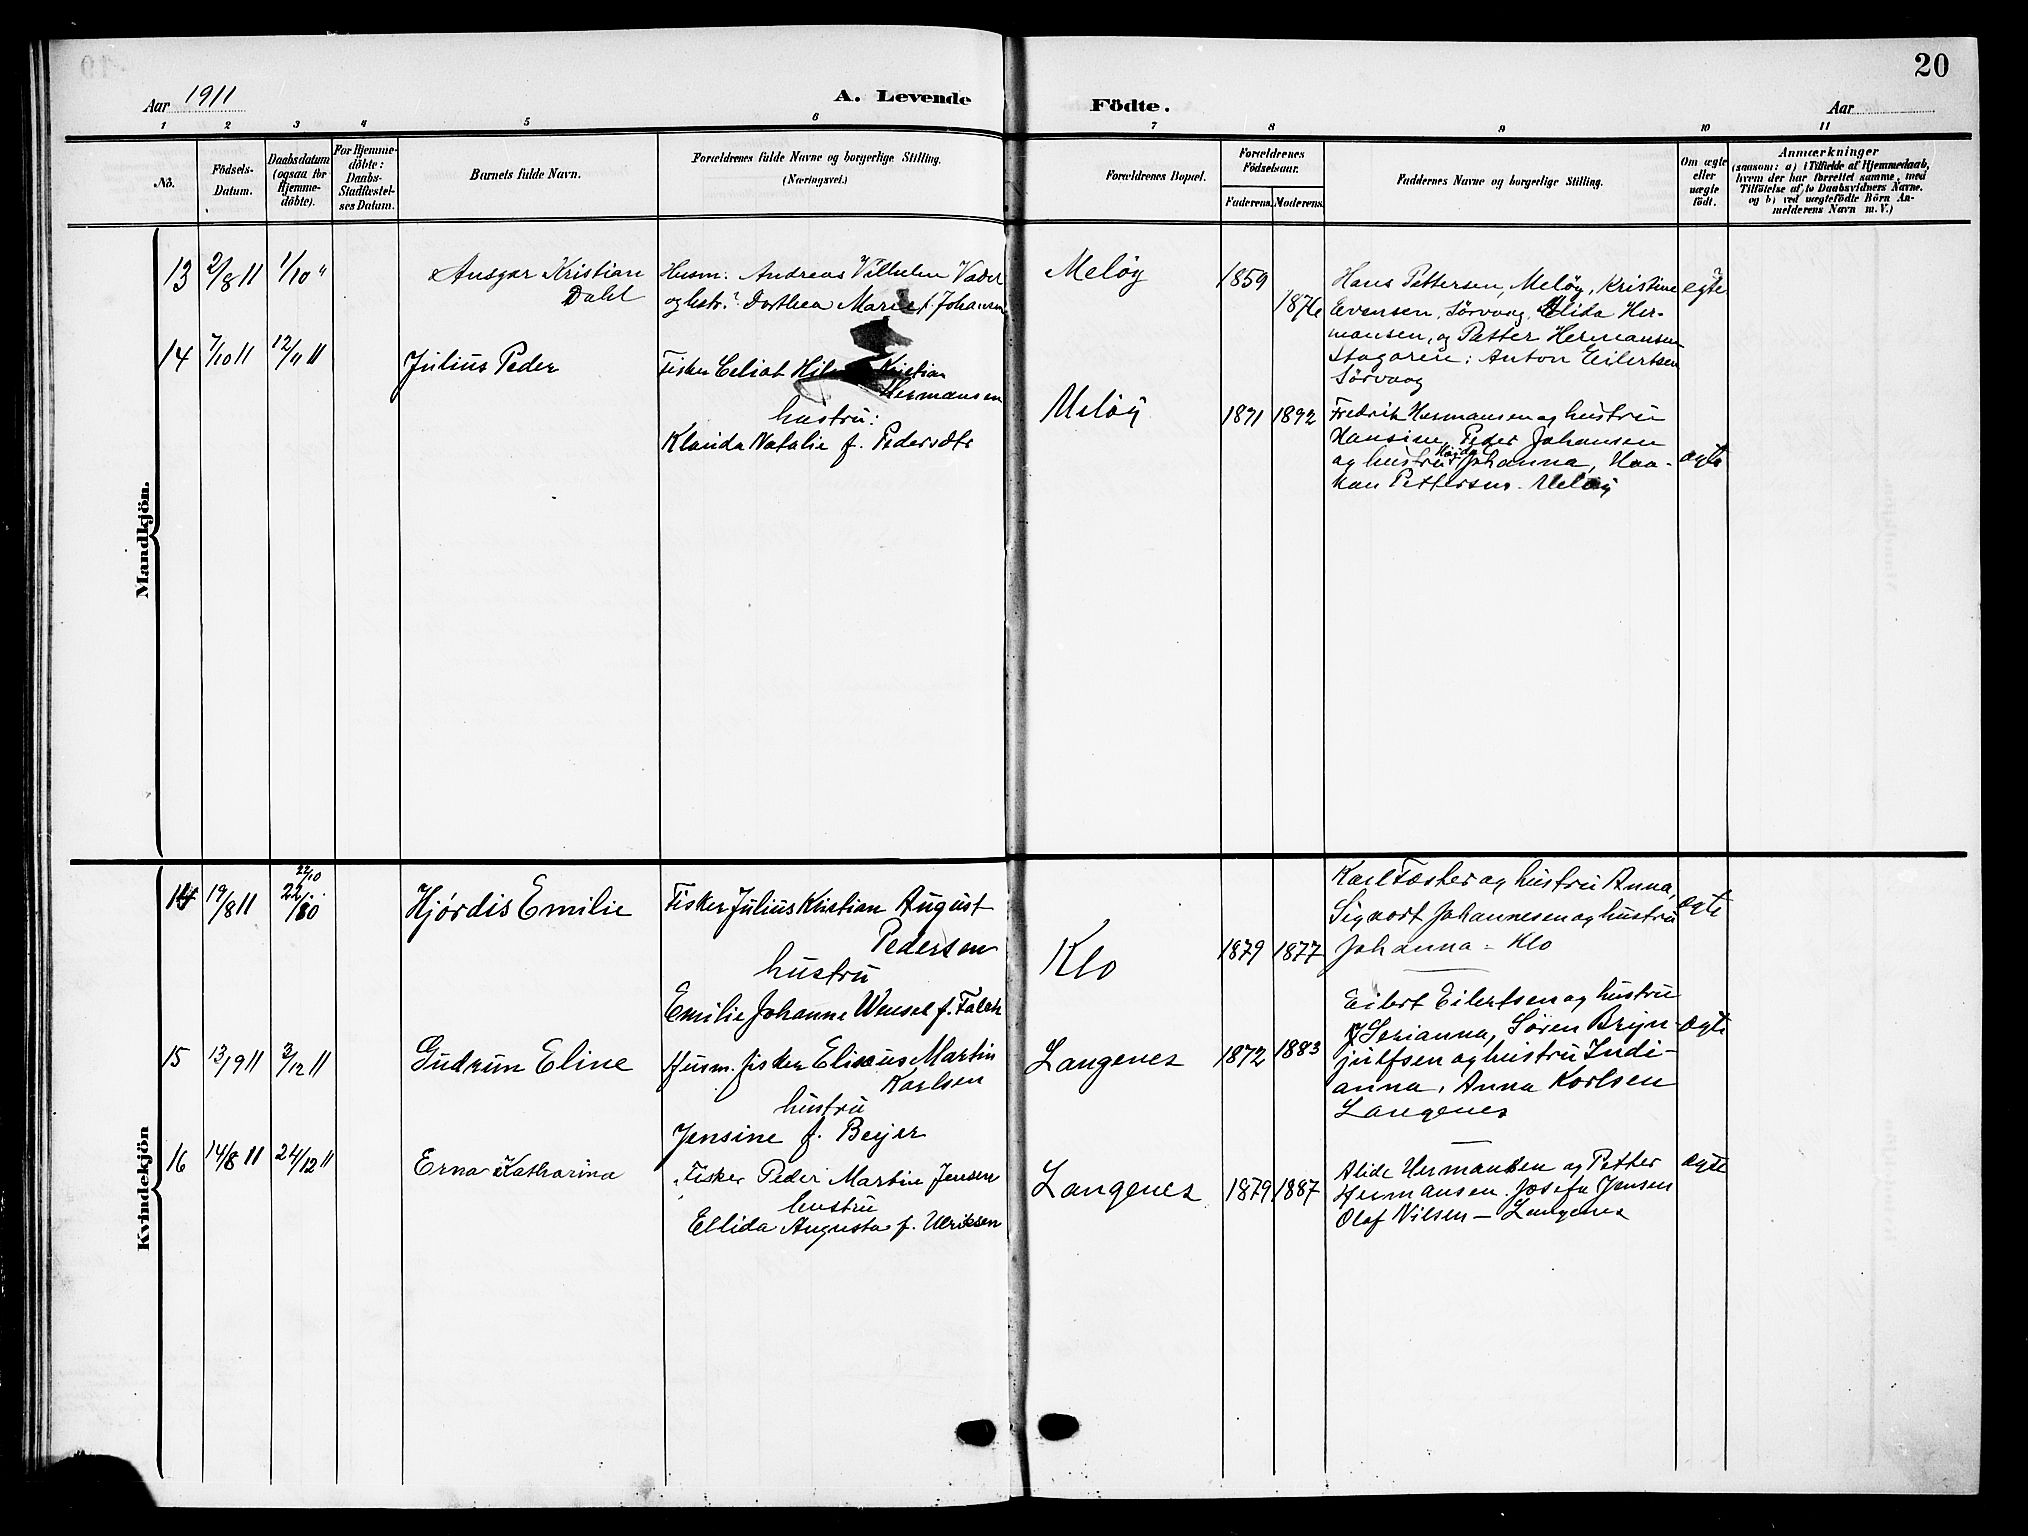 20
Aar 1911
A. Levende
Födte.
Aar
1 2 3 4 5 6 7 8 9 10 11
No.
Födsels-
Datum.
Daabsdatum
(ogsaa for
Hjemme-
döbte).
For Hjemme-
döbte:
Daabs-
Stadfæstel-
ses Datum.
Barnets fulde Navn.
Forældrenes fulde Navne og borgerlige Stilling.
(Næringsvei.)
Forældrenes Bopæl.
Forældrenes
Födselsaar.
Faderens. Moderens.
Faddernes Navne og borgerlige Stilling.
Om ægte
eller
uægte
födt.
Anmærkninger
(saasom: a) i Tilfælde af Hjemmedaab,
hvem der har forrettet samme, med
Tilföielse af to Daabsvidners Navne.
og b) ved uægtefödte Börn An-
melderens Navn m. V.)
Mandkjön.
13 2/8 11 1/10 "
Ansgar Kristian
Dahl
Husm: Andreas Vilhelm Vader
og hstr: Dorthea Marie f. Johansen
Meløy
1859
1876
Hans Pettersen, Meløy, Kristine
Evensen, Sørvaag, Elida Her-
mansen, og Petter Hermansen
Skogøren; Anton Eilertsen
Sørvaag
egte
14 7/10 11 12/11 11
Julius Peder
Fisker Celiat Kristian
Hermansen
hustru:
Klauda Natalie f. Pedersdtr
Meløy
1871 1892
Fredrik Hermansen og hustru
Hansine, Peder Johansen
og hustru Johanna, Haa-
kon Pettersen. Meløy
ægte
Kvindekjön
14 19/8 11 22/10
22/10
Hjørdis Emilie
Fisker Julius Kristian August
Pedersen
hustru
Emilie Johanne Wensel f. Falch
Klo
1879 1877
Karl Fæster og hustru Anna,
Sigvart Johannesen og hustru
Johanna - Klo
ægte
15 13/9 11 3/12 11
Gudrun Eline
Husm. fisker Eliseus Martin
Karlsen
hustru
Jensine f. Beyer
Langenes
1872 1883
Eilert Eilertsen og hustru
Serianna, Søren Bryn-
julfsen og hustru Indi-
anna, Anna Karlsen
Langenes
ægte
16 14/8 11 24/12 11
Erna Katharina
Fisker Peder Martin Jensen
hustru
Ellida Augusta f. Ulriksen
Langenes
1879 1887
Alide Hermansen og Petter
Hermansen. Josefa Jensen
Olaf Nilsen - Langenes
ægte